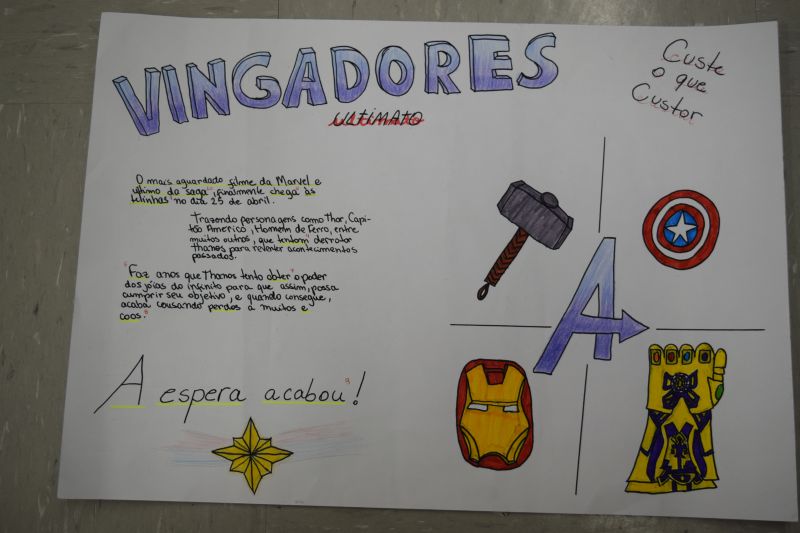 VINGADORES
ULTIMATO
Custe
o que
Custar
O mais aguardado filme da Marvel e
último da saga, finalmente chega às
telinhas no dia 25 de abril.
Trazendo personagens como Thor, Capi-
tão América, Homem de Ferro, entre
muitos outros, que tentam derrotar
thanos para reverter acontecimentos
passados.
Faz anos que Thanos tenta obter o poder
das jóias do infinito para que assim, possa
cumprir seu objetivo, e quando consegue,
acaba causando perdas a muitos e
caos.
A espera acabou!
A